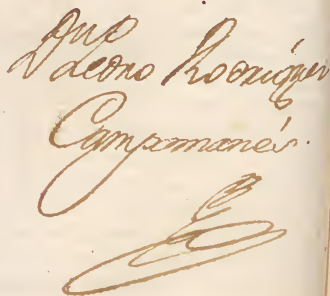 Dn Pedro Rodríguez
Campomanes.